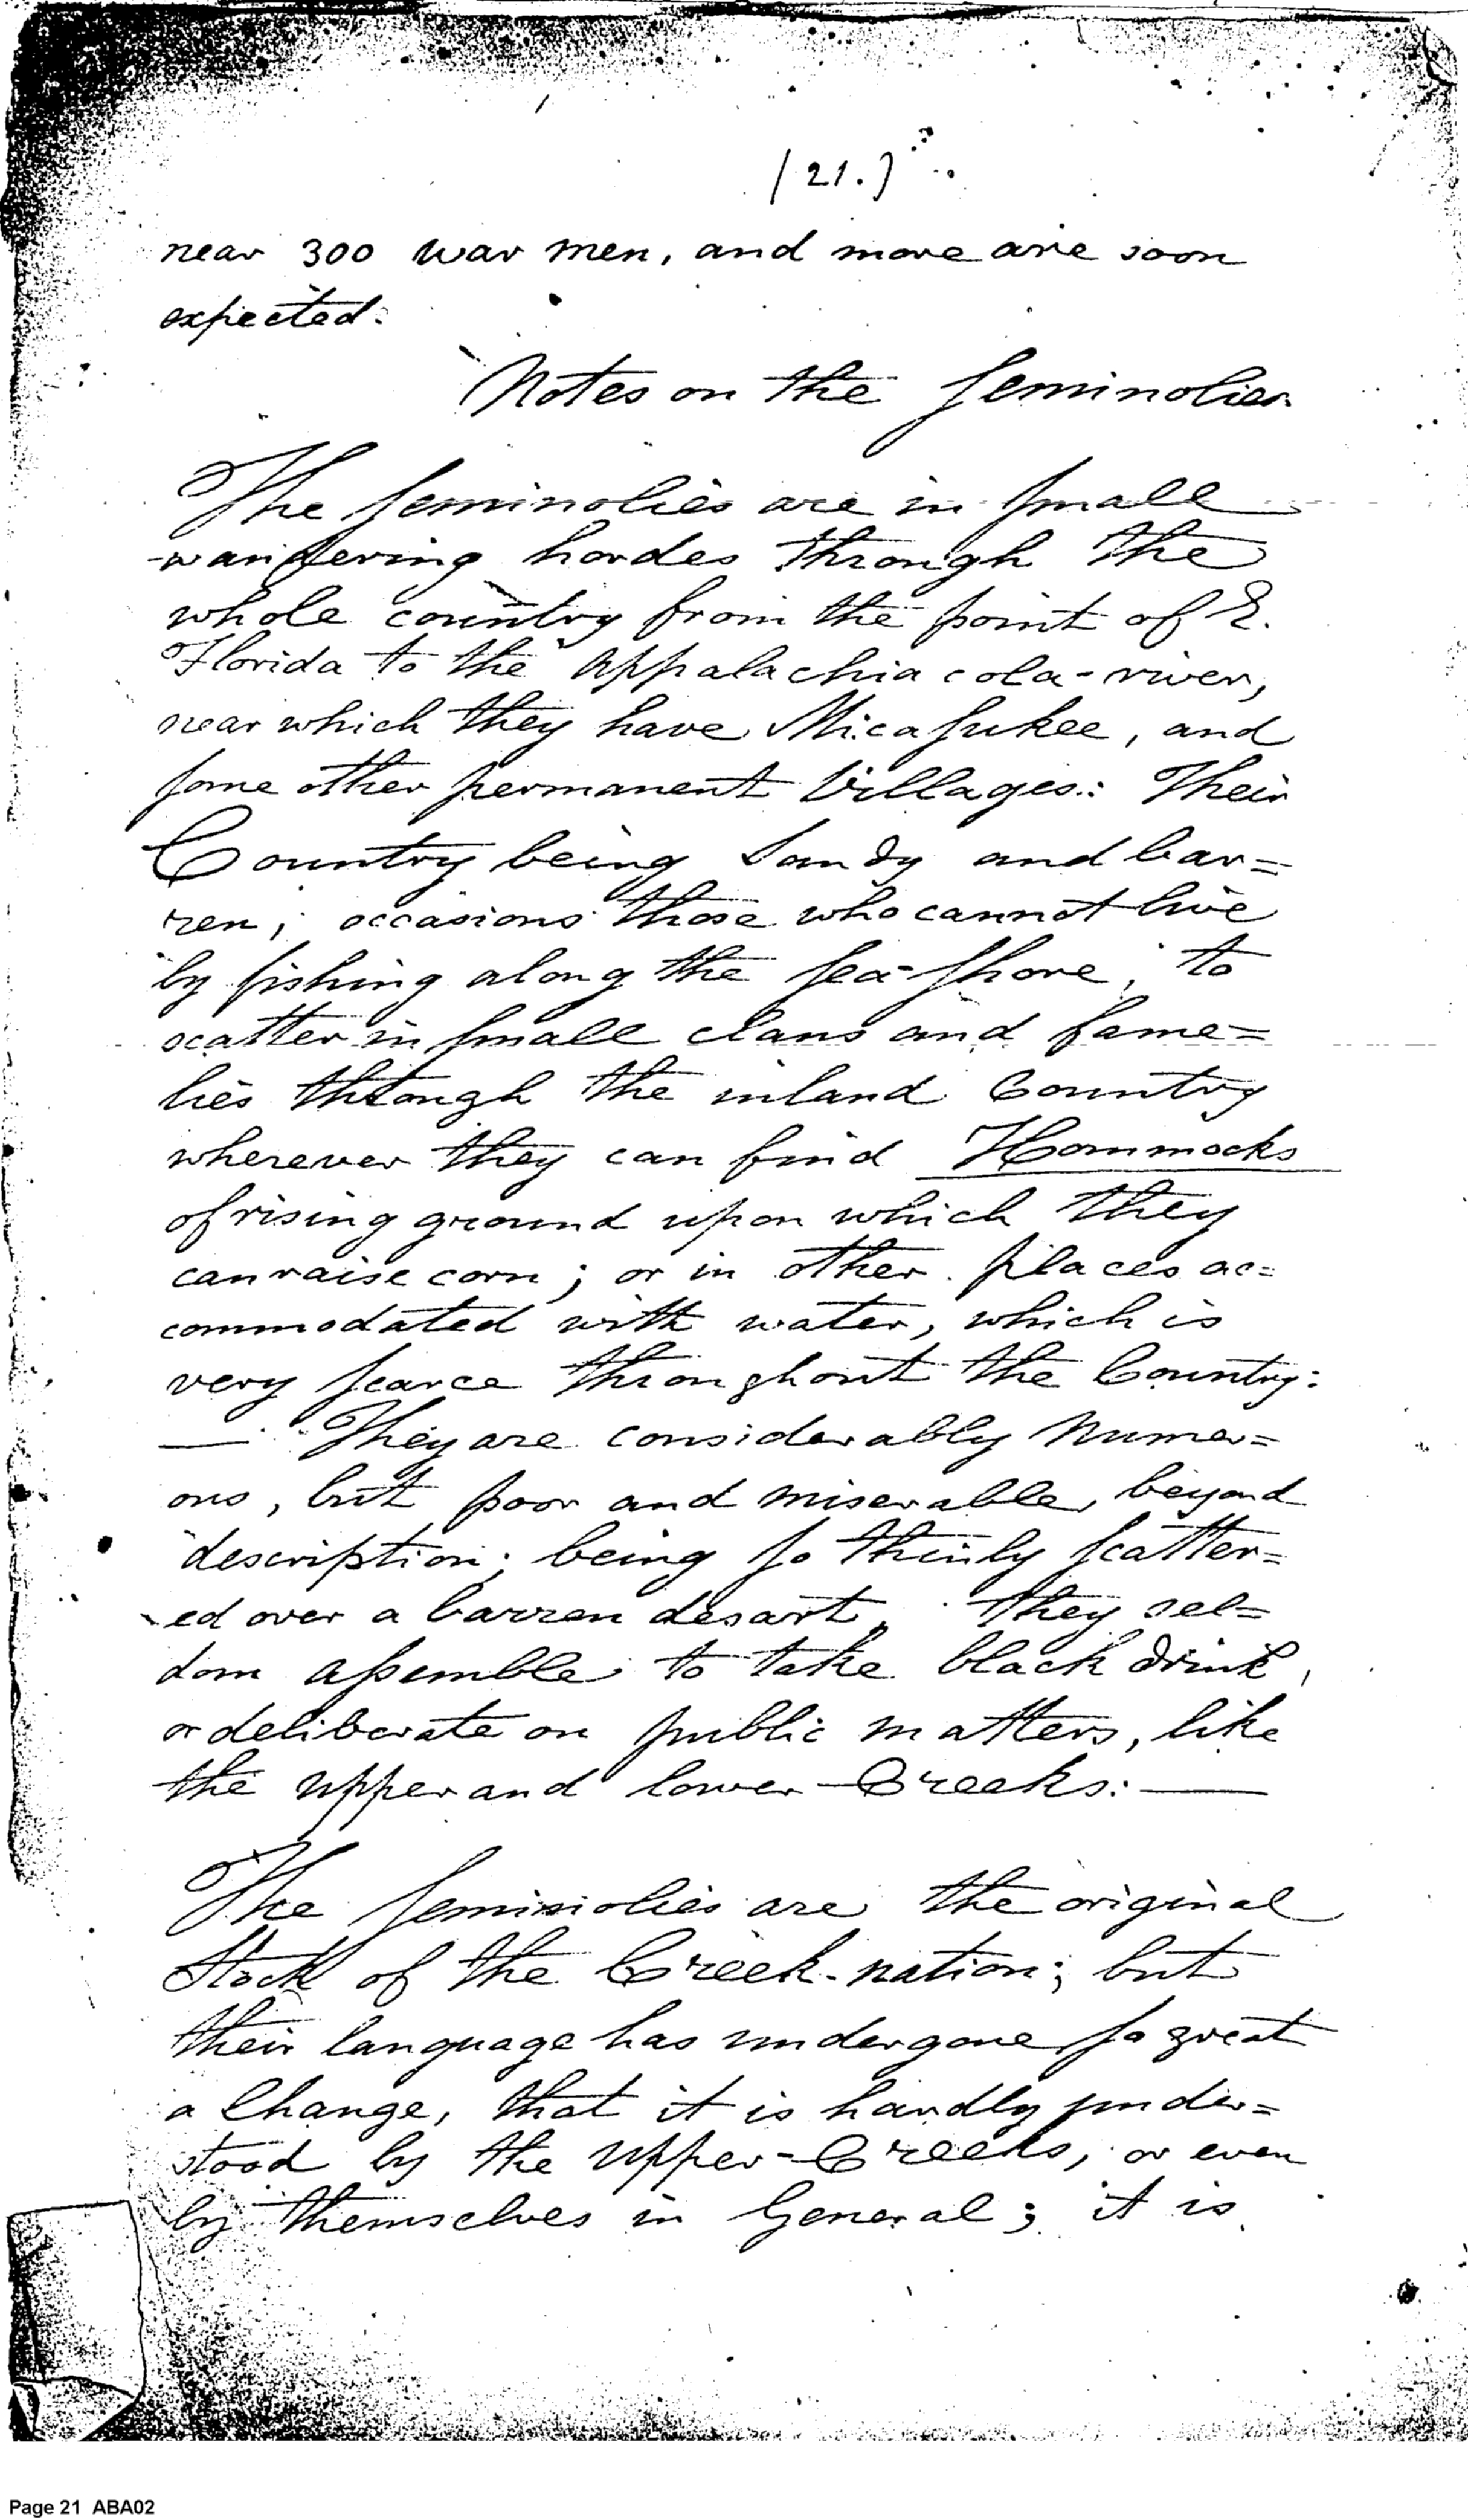 (21.)
near 300 war men, and more are soon
expected.
Notes on the Seminolies.
The Seminolies are in small
wandering hordes through the
whole country from the point of E.
Florida to the Appalachia cola-river,
near which they have Micasukee, and
some other permanent Villages: Their
Country being Sandy and bar=
ren; occasions those who cannot live
by fishing along the sea-shore, to
scatter in small clans and fame=
lies through the inland Country
wherever they can find Hommocks
of rising ground upon which they
can raise corn; or in other places ac=
commodated with water, which is
very scarce throughout the Country:
— They are considerably numer=
ous, but poor and miserable, beyond
description; being so thinly scatter=
ed over a barren desart. They sel=
dom assemble to take black drink,
or deliberate on public matters, like
the Upper and lower-Creeks: —
The Seminolies are the original
Stock of the Creek-nation; but
their language has undergone so great
a Change, that it is hardly under=
stood by the Upper-Creeks, or even
by themselves in General; it is
Page 21 ABA02